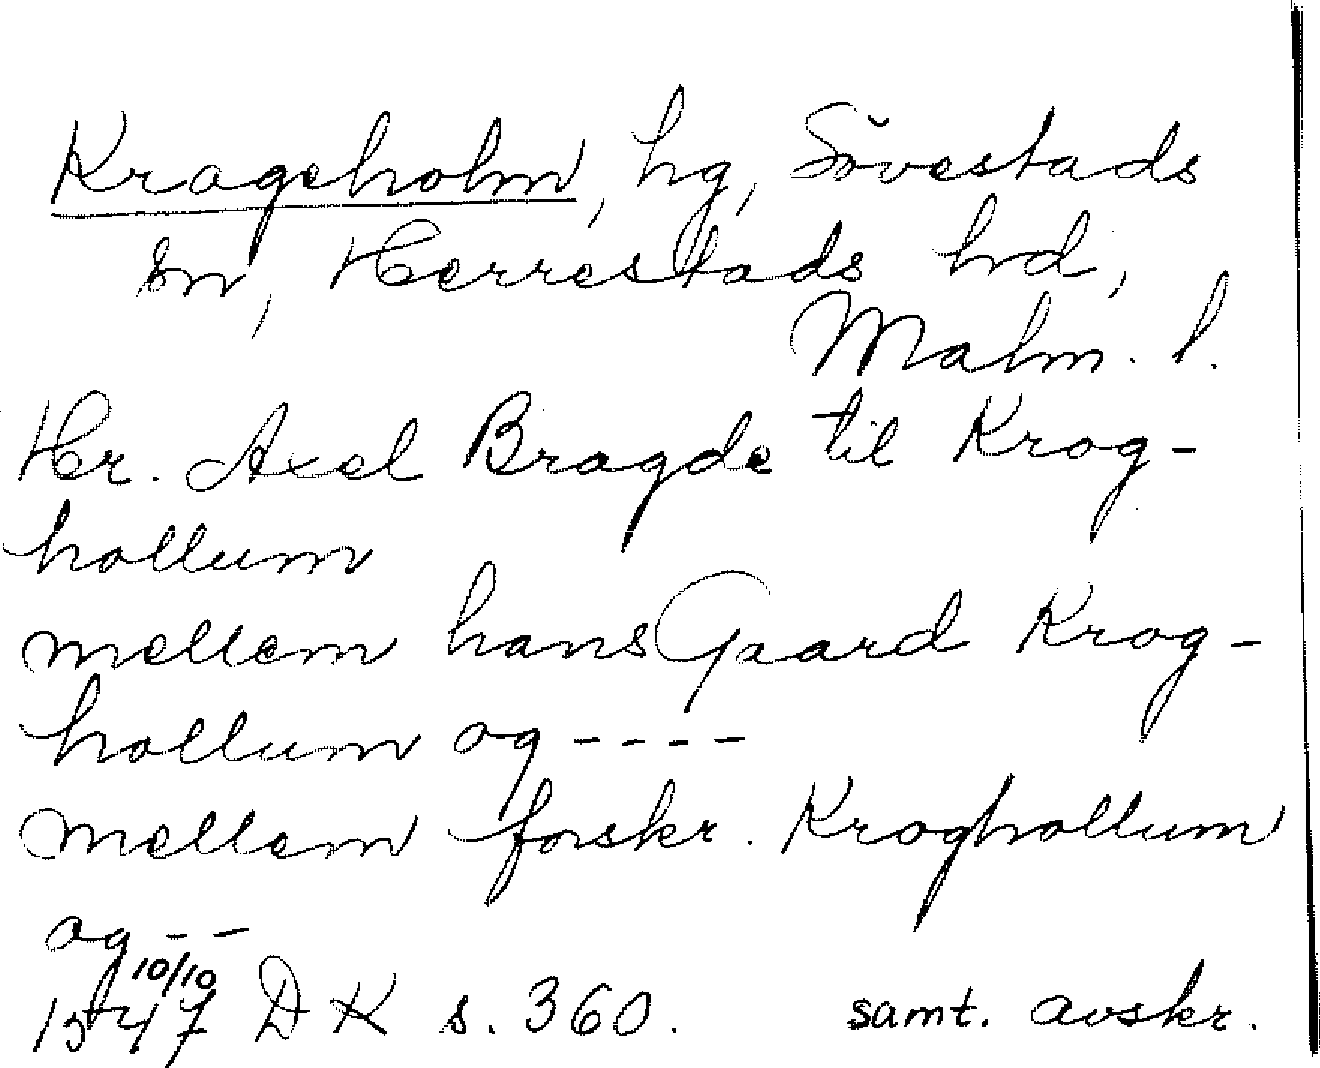 Krageholm, hg, Sövestads
sn, Herrestads hd,
Malm. l.
Hr. Axel Bragde til Krog-
hollum
mellem hans Gaard Krog-
hollum og - - - -
mellem forskr. Kroghollum
og - -
10/10
1547 DK s. 360. samt. avskr.